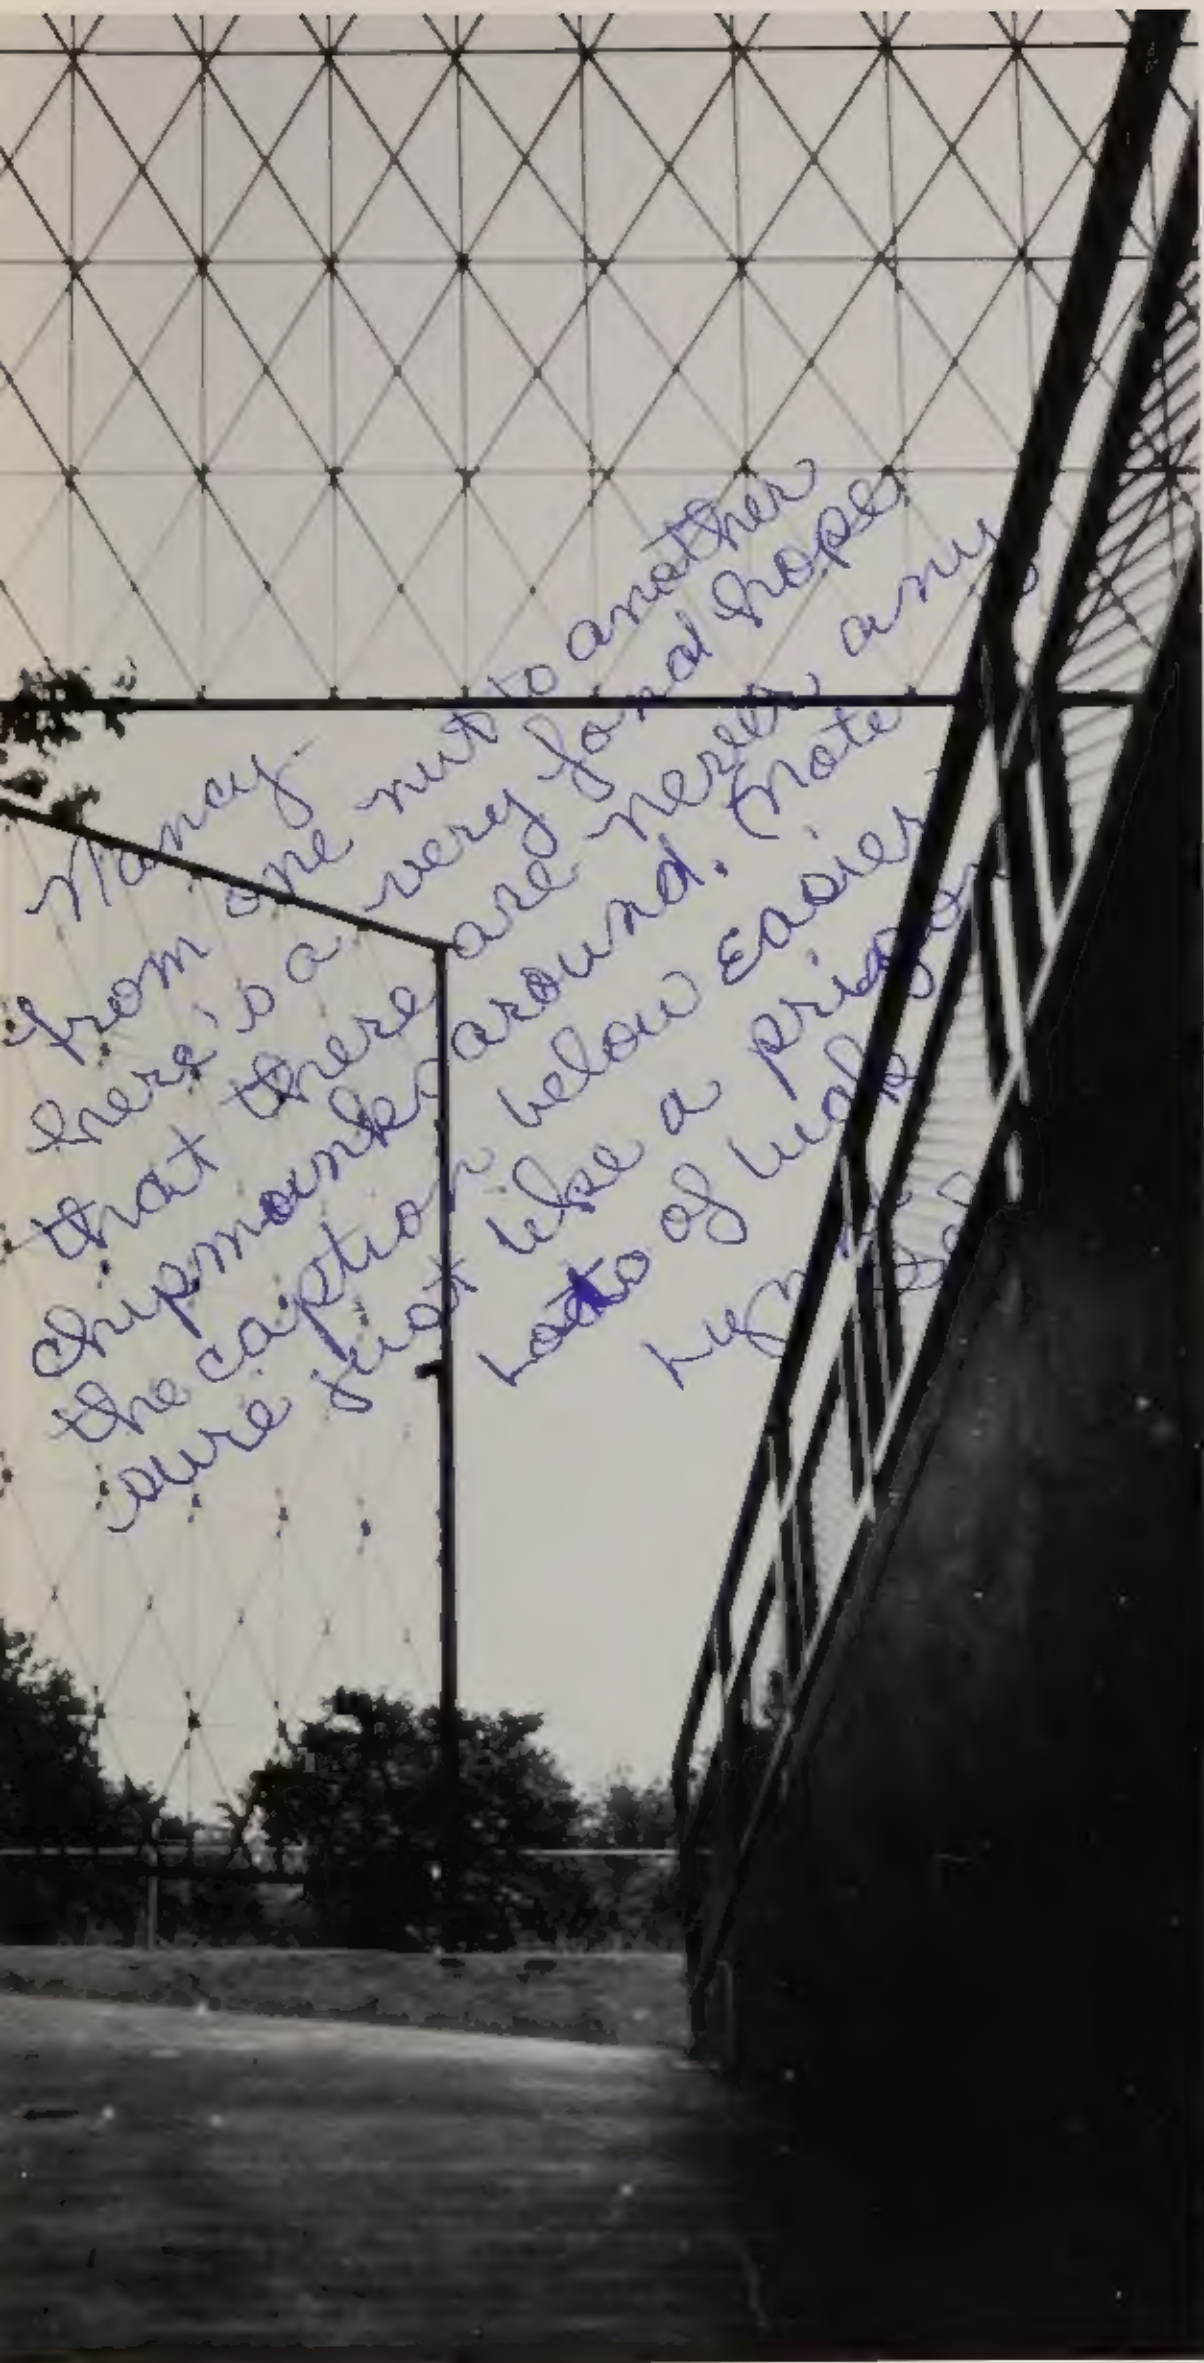 Nancy-
from one nut to another
here's a very fond hope
that there are never any
chipmounks around. (Note
the caption below easier
sure just like a prison
Lots of luck
Lyn